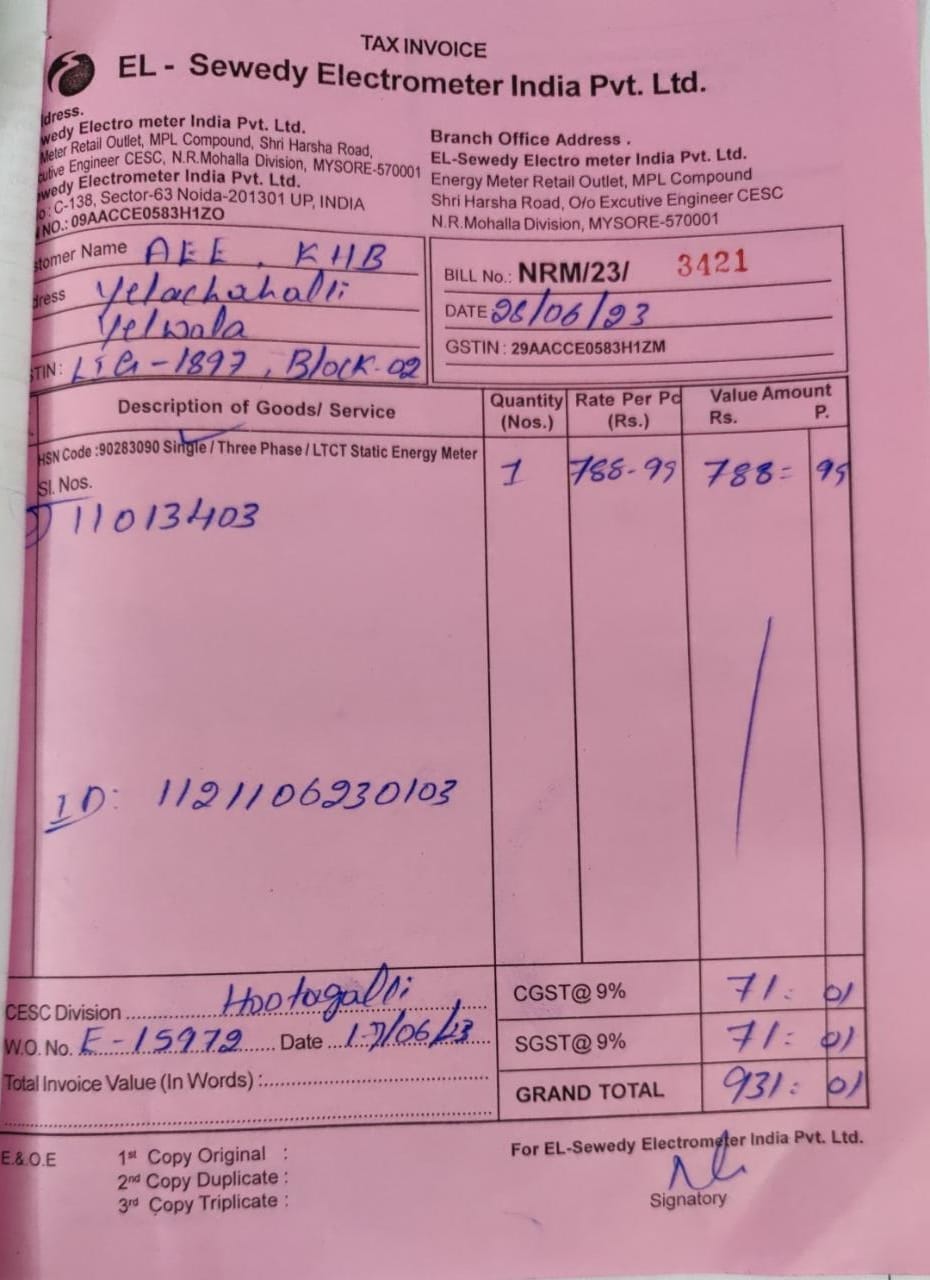 TAX INVOICE
EL - Sewedy Electrometer India Pvt. Ltd.
dress.
wedy Electro meter India Pvt. Ltd.
Meter Retail Outlet, MPL Compound, Shri Harsha Road,
utive Engineer CESC, N.R.Mohalla Division, MYSORE-570001
wedy Electrometer India Pvt. Ltd.
o : C-138, Sector-63 Noida-201301 UP, INDIA
NO.: 09AACCE0583H1ZO
Branch Office Address .
EL-Sewedy Electro meter India Pvt. Ltd.
Energy Meter Retail Outlet, MPL Compound
Shri Harsha Road, O/o Excutive Engineer CESC
N.R.Mohalla Division, MYSORE-570001
stomer Name AEE, KHB
dress Yelachahalli
Yelwala
STIN: LIG-1897, Block-02
BILL No.: NRM/23/ 3421
DATE 28/06/23
GSTIN : 29AACCE0583H1ZM
Description of Goods/ Service Quantity (Nos.) Rate Per Pc (Rs.) Value Amount Rs. P.
HSN Code :90283090 Single / Three Phase / LTCT Static Energy Meter 1 788-99 788= 99
Sl. Nos.
11013403
ID: 1121106230103
CESC Division Hootagalli
W.O. No. E-15972 Date 17/06/23
Total Invoice Value (In Words) :
CGST@ 9% 71: 01
SGST@ 9% 71: 01
GRAND TOTAL 931: 01
E.& O.E
1st Copy Original :
2nd Copy Duplicate :
3rd Copy Triplicate :
For EL-Sewedy Electrometer India Pvt. Ltd.
Signatory